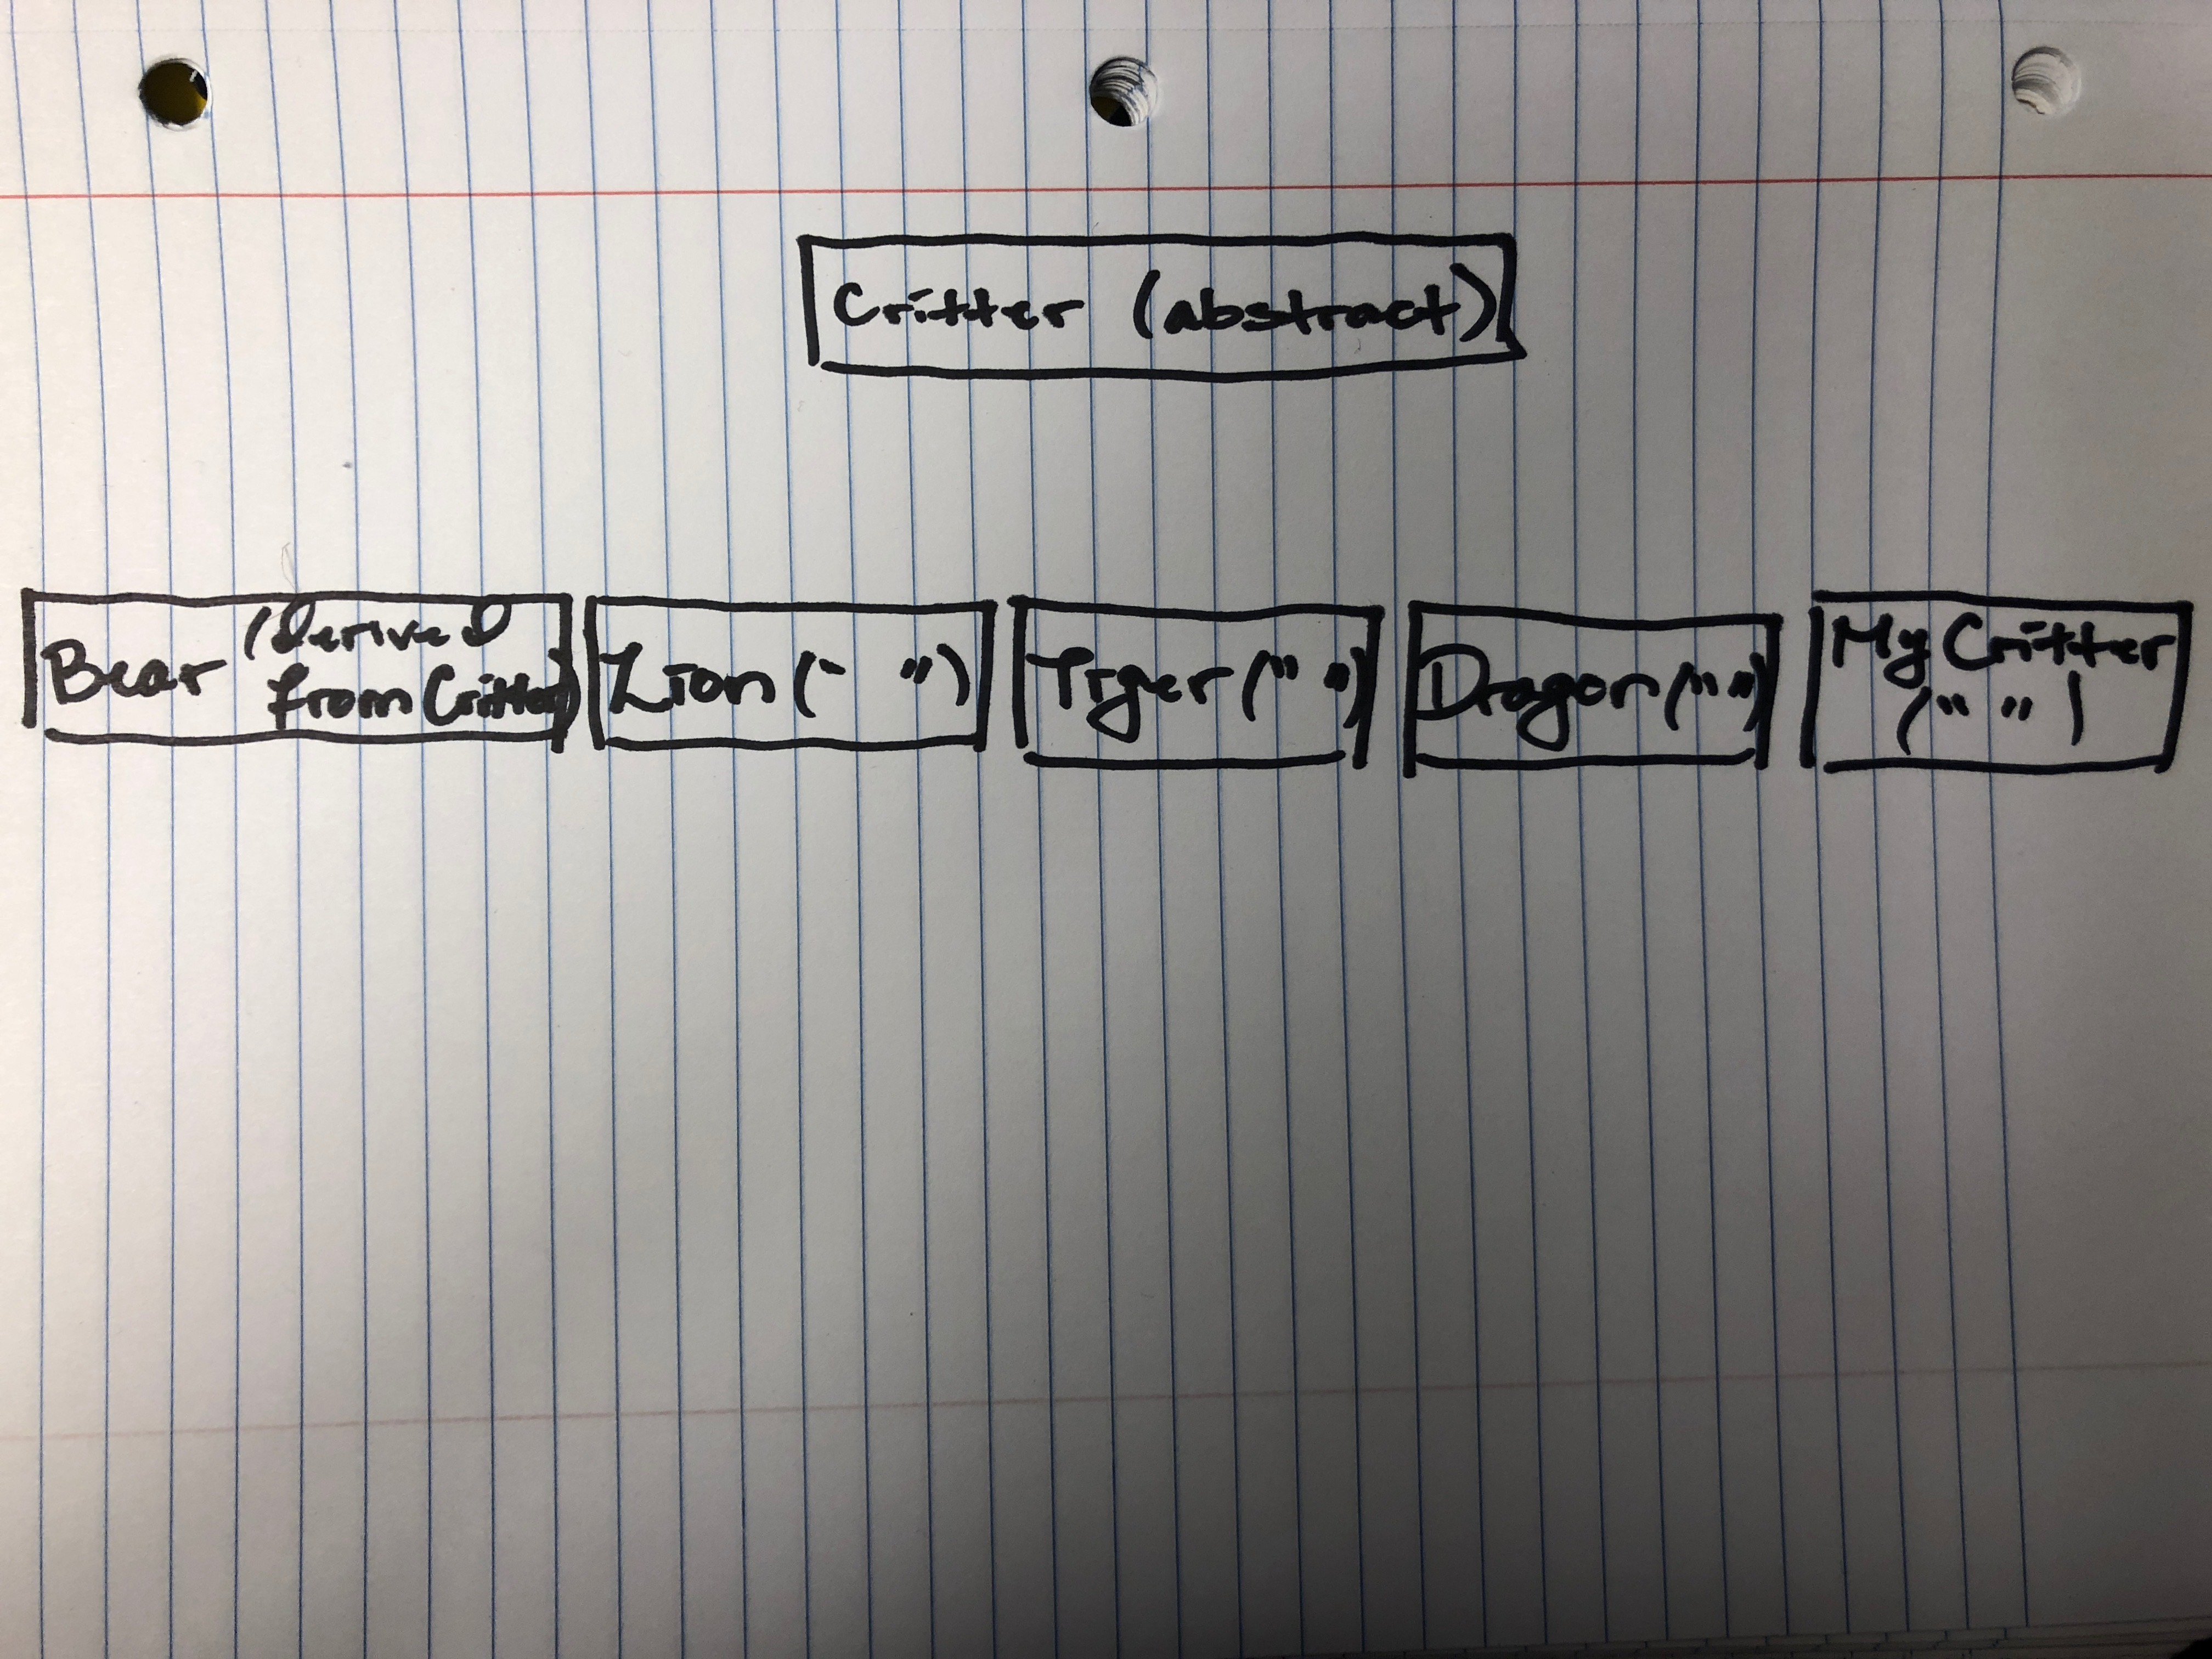 Critter (abstract)
Bear (Derived
from Critter)
Lion (" ")
Tiger (" ")
Dragon (" ")
My Critter
(" ")